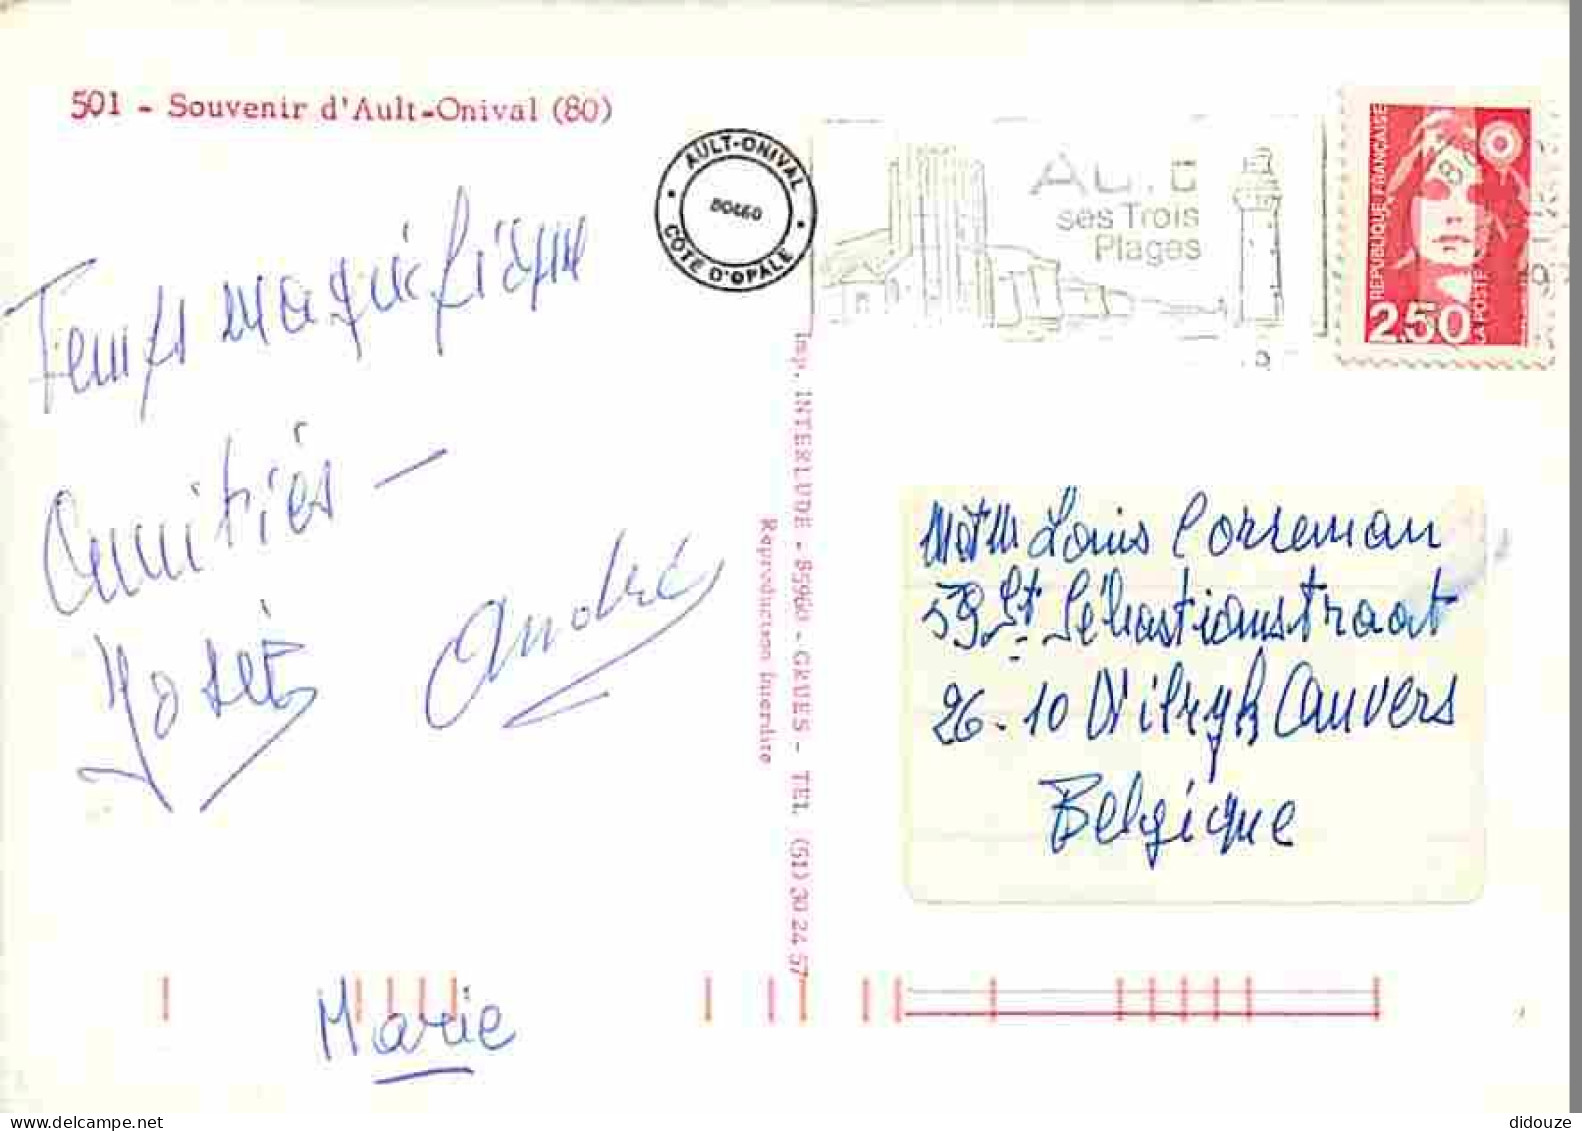 501 - Souvenir d'Ault-Onival (80)
AULT-ONIVAL
80460
CÔTE D'OPALE
AULT
ses Trois
Plages
REPUBLIQUE FRANÇAISE
LA POSTE
2,50
Temps magnifique
Amitiés -
André
Marie
Imp. INTERLUDE - 85960 - GRUES - TEL. (51) 30 24 57
Reproduction Interdite
Louis Corseman
59 St Sébastianstraat
26-10 Wilryk Anvers
Belgique
didouze